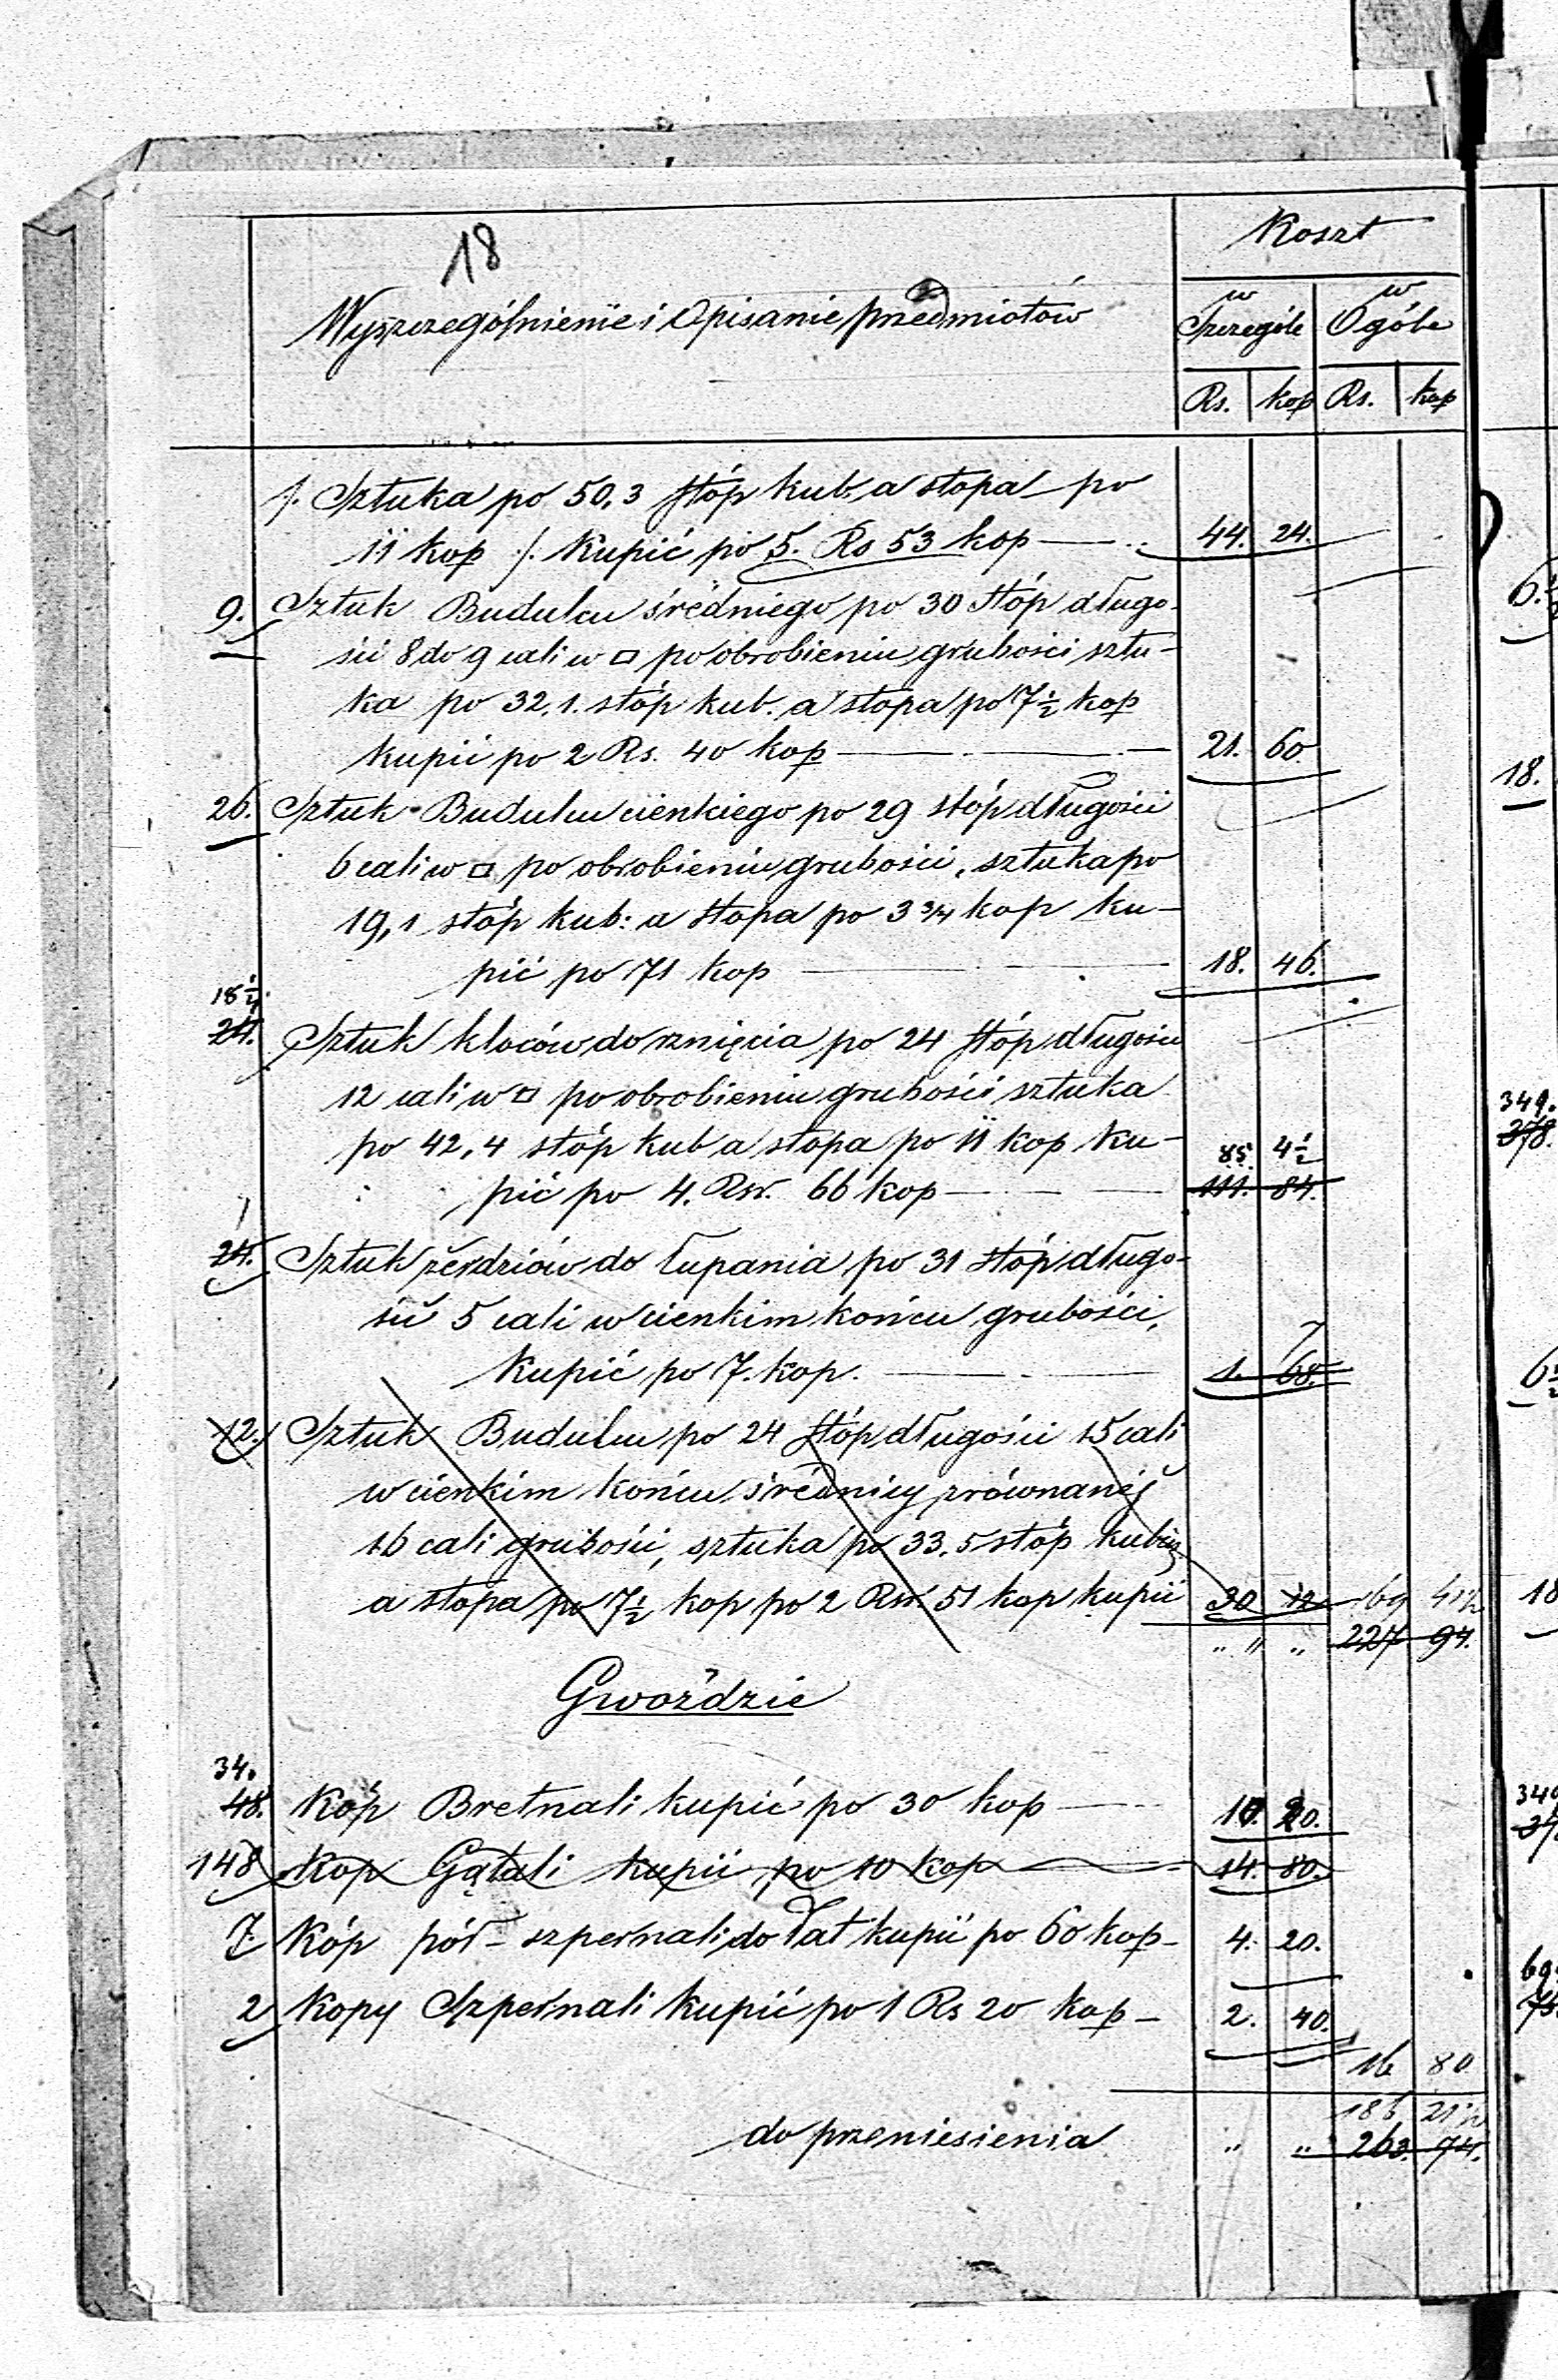 18
Koszt
Wyszczególnienie i Opisanie przedmiotów
w Szczególe
w Ogóle
Rs. kop Rs. kop
/. Sztuka po 50,3 stóp kub. a stopa po
11 kop /. Kupić po 5. Rs 53 kop 44. 24.
9. Sztuk Budulcu średniego po 30 stóp długo-
ści 8 do 9 cali w □ po obrobieniu grubości sztu-
ka po 32,1. stóp kub. a stopa po 7½ kop
kupić po 2 Rs. 40 kop 21. 60.
26. Sztuk Budulcu cienkiego po 29 stóp długości
6 cali w □ po obrobieniu grubości, sztuka po
19,1 stóp kub: a stopa po 3 3/4 kop ku-
pić po 71 kop 18. 46.
18¼
24. Sztuk kloców do rznięcia po 24 stóp długości
12 cali w □ po obrobieniu grubości sztuka
po 42,4 stóp kub a stopa po 11 kop ku- 85. 4½
pić po 4. Rsr. 66 kop 111. 84.
1
24. Sztuk żerdziów do łupania po 31 stóp długo-
ści 5 cali w cienkim końcu grubości,
7
Kupić po 7. kop. 1. 68.
12. Sztuk Budulcu po 24 stóp długości 15 cali
w cienkim końcu średnicy zrównanéj
16 cali grubości, sztuka po 33,5 stóp kubicz
a stopa po 7½ kop po 2 Rsr. 51 kop kupić 30 12 169 41½
„ „ „ 227 94.
Gwoździe
34.
48. Kóp Bretnali kupić po 30 kop 10. 20.
148 Kop Gątali kupić po 10 kop 14. 80.
7 Kóp pół-szpernali do łat kupić po 60 kop 4. 20.
2 Kopy Szpernali kupić po 1 Rs 20 kop 2. 40.
16 80
186 21½
do przeniesienia „ „ 263. 74.